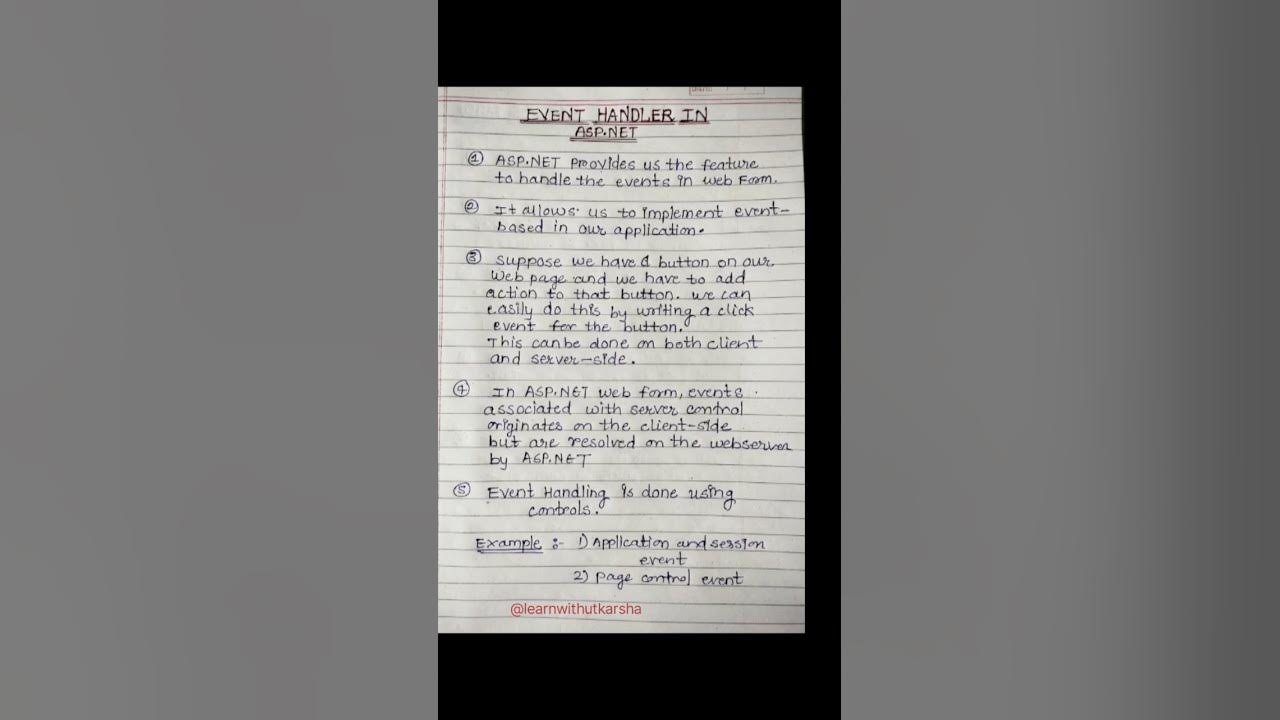 EVENT HANDLER IN
ASP.NET
① ASP.NET Provides us the feature
to handle the events in web Form.
② It allows us to implement event-
based in our application.
③ Suppose we have a button on our
Web page and we have to add
action to that button. we can
easily do this by writing a click
event for the button.
This canbe done on both client
and server-side.
④ In ASP.NET web form, events
associated with server control
originates on the client-side
but are resolved on the webserver
by ASP.NET
⑤ Event Handling is done using
controls.
Example :- 1) Application and session
event
2) Page control event
@learnwithutkarsha